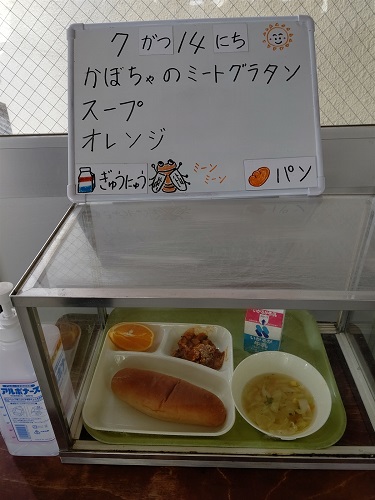 7 がつ 14 にち
かぼちゃのミートグラタン
スープ
オレンジ
ぎゅうにゅう ミーン ミーン パン
アルボナース